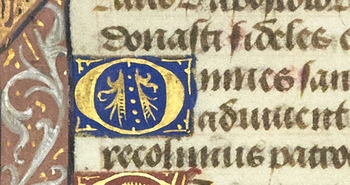 donasti fideles
Omnes san
aduuent
recolimus patro